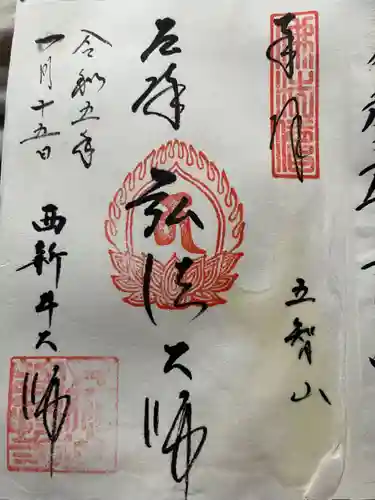 奉拝
五智山
厄除
弘法大師
令和五年
一月十五日
西新井大師